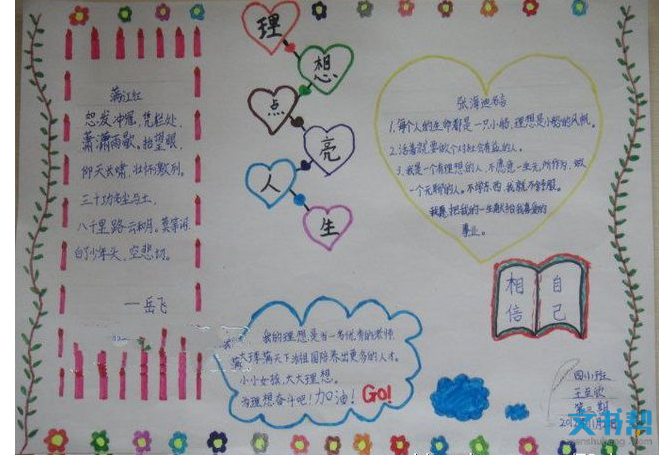 理
想
点
亮
人
生
满江红
怒发冲冠,凭栏处,
潇潇雨歇,抬望眼,
仰天长啸,壮怀激烈。
三十功名尘与土,
八千里路云和月。莫等闲
白了少年头,空悲切。
—岳飞
张海迪名言
1.每个人的生命都是一只小船,理想是小船的风帆。
2.活着就要做个对社会有益的人。
3.我是一个有理想的人,不愿意一生无所作为,做
一个无聊的人。不学东西,我就不舒服。
我愿把我的一生献给我喜爱的
事业。
相信
自己
我的理想是当一名优秀的老师,
满天下为祖国培养出更多的人才。
小小女孩,大大理想。
为理想奋斗吧!加油!Go!
四小班
文书帮